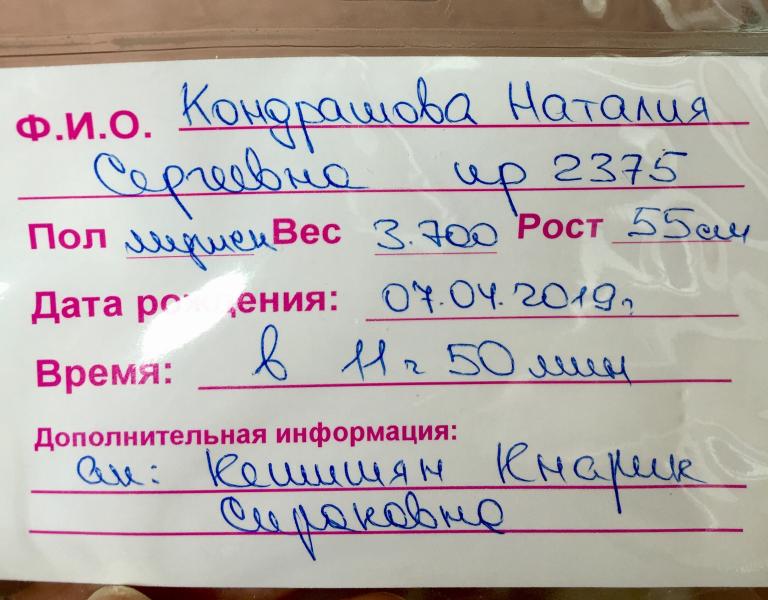 Ф.И.О. Кондрашова Наталия
Сергеевна ир 2375
Пол Вес 3.700 Рост 55см
Дата рождения: 07.04.2019г.
Время: в 11г 50 мин
Дополнительная информация:
ак: Кешишян Кнарик
Сираковна